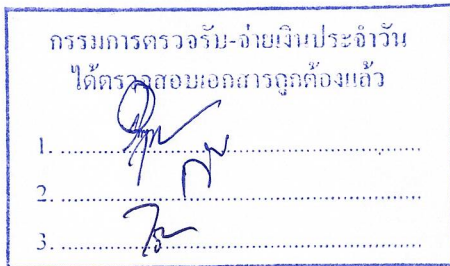 กรรมการตรวจรับ-จ่ายเงินประจำวัน
ได้ตรวจสอบเอกสารถูกต้องแล้ว
1. ........................................
2. ........................................
3. ........................................